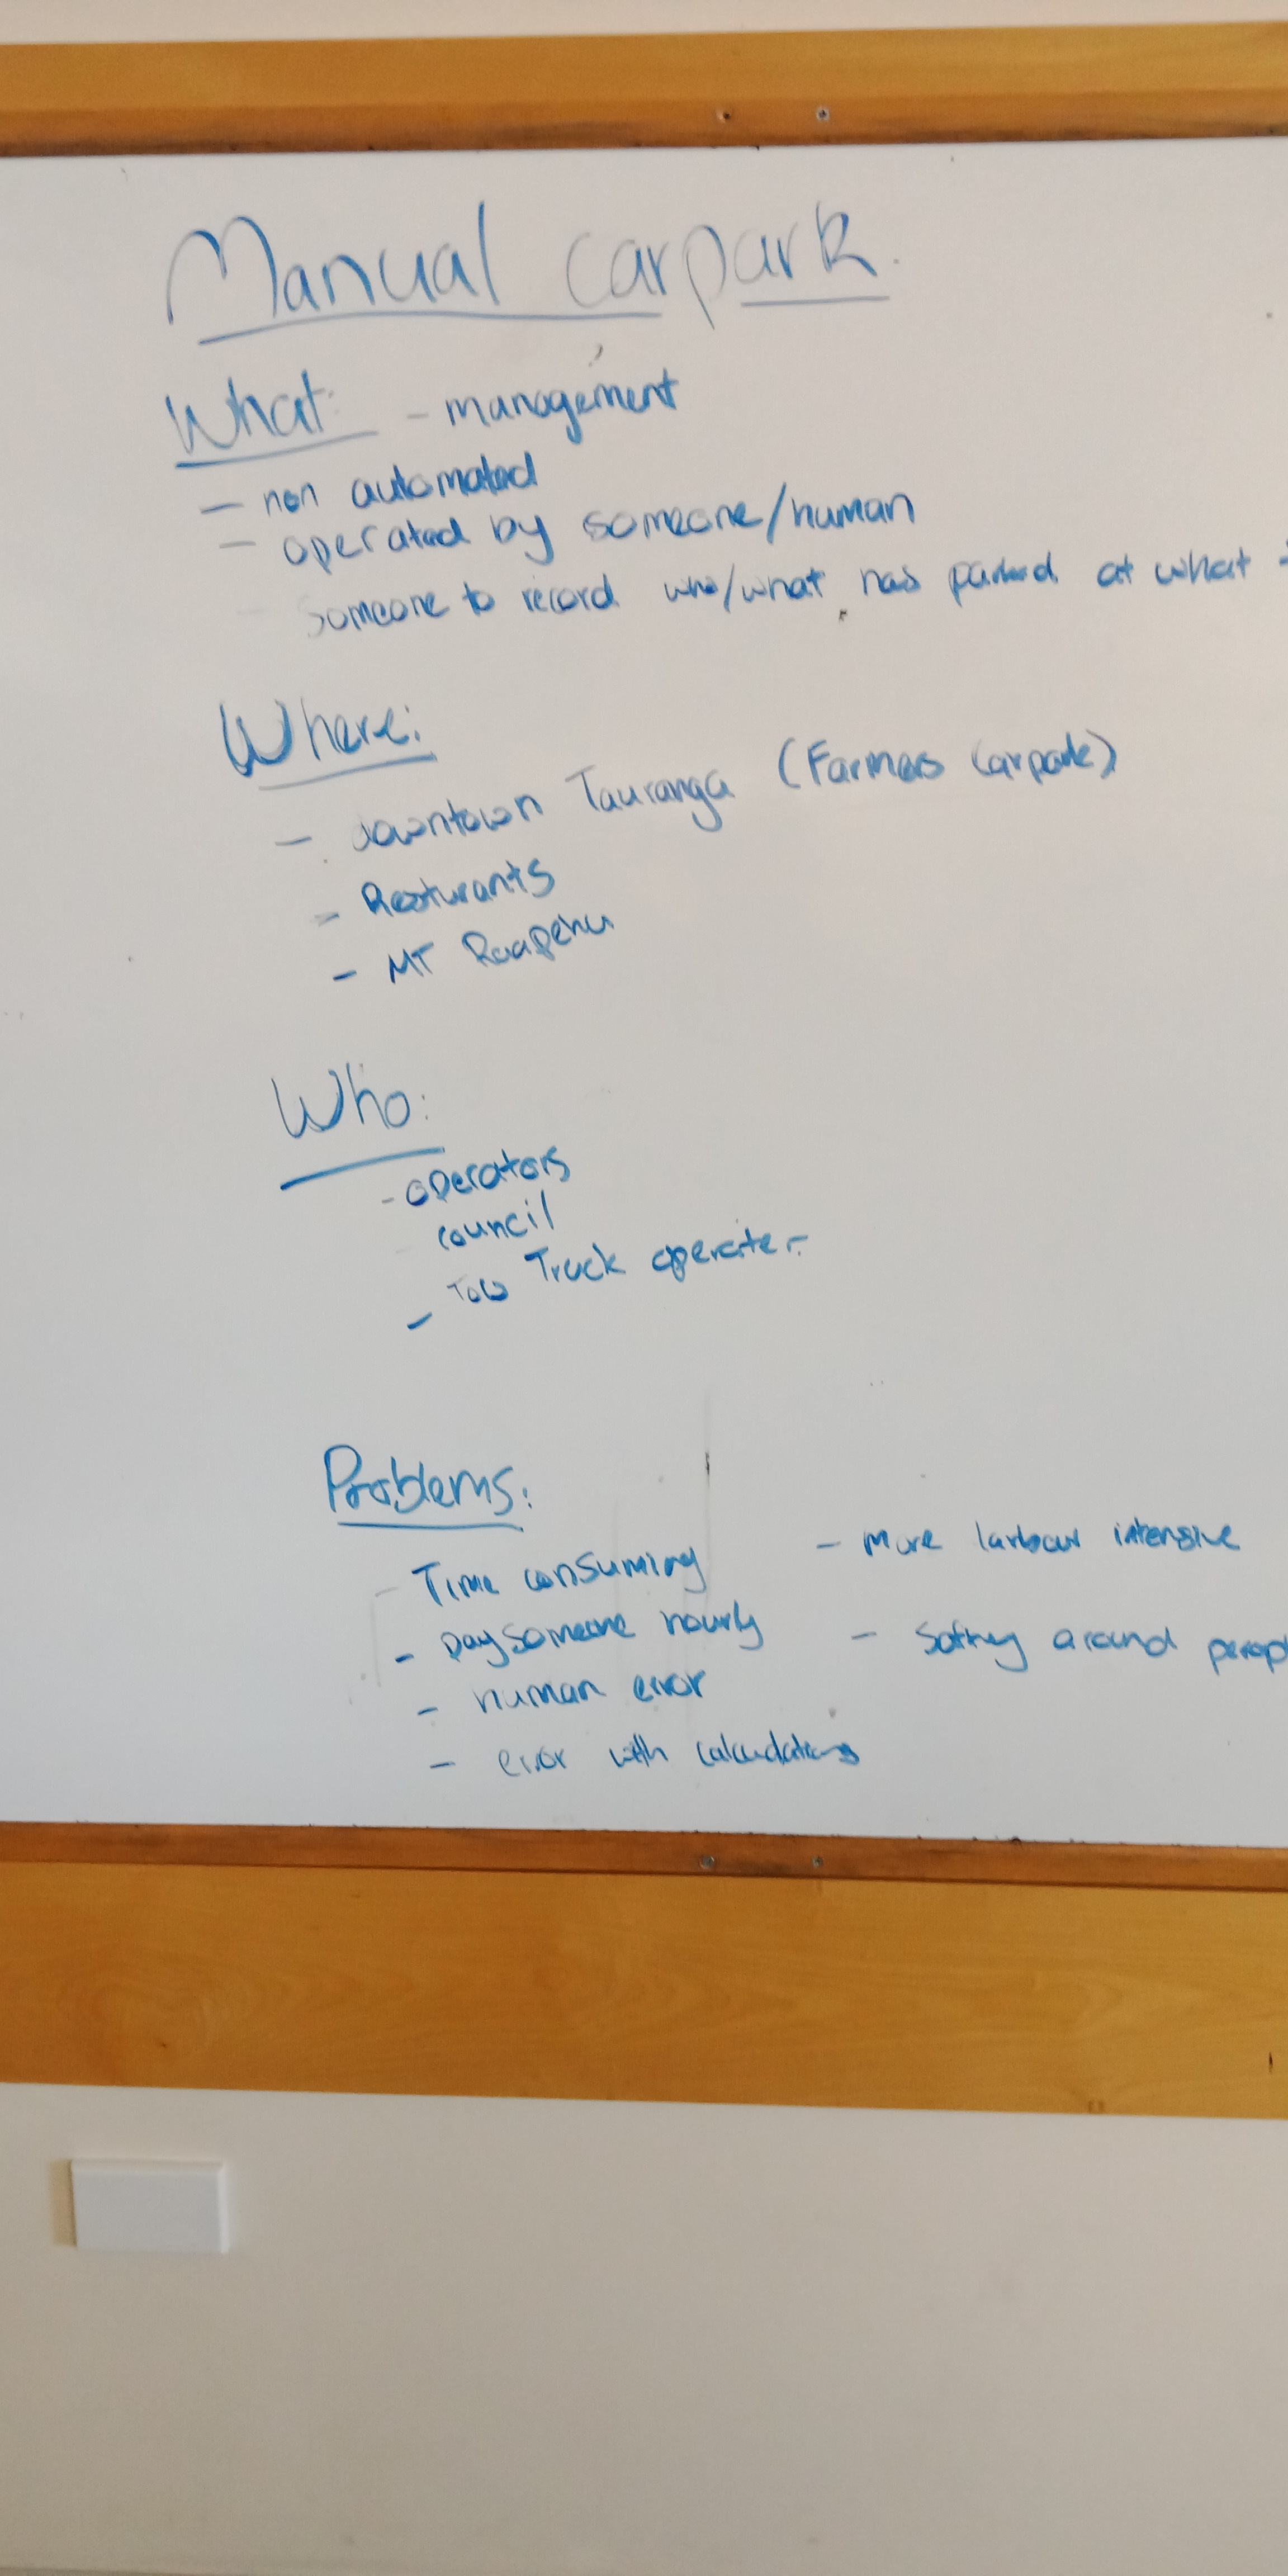 Manual carpark.
What: - management
- non automated
- operated by someone/human
- someone to record who/what has parked at what
Where:
- downtown Tauranga (Farmers Carpark)
- Resturants
- MT Ruapehu
Who:
- operators
- council
- Tow Truck operater
Problems:
- Time consuming
- Pay someone hourly
- human error
- error with calculations
- More larbour intensive
- Saftey around peropl